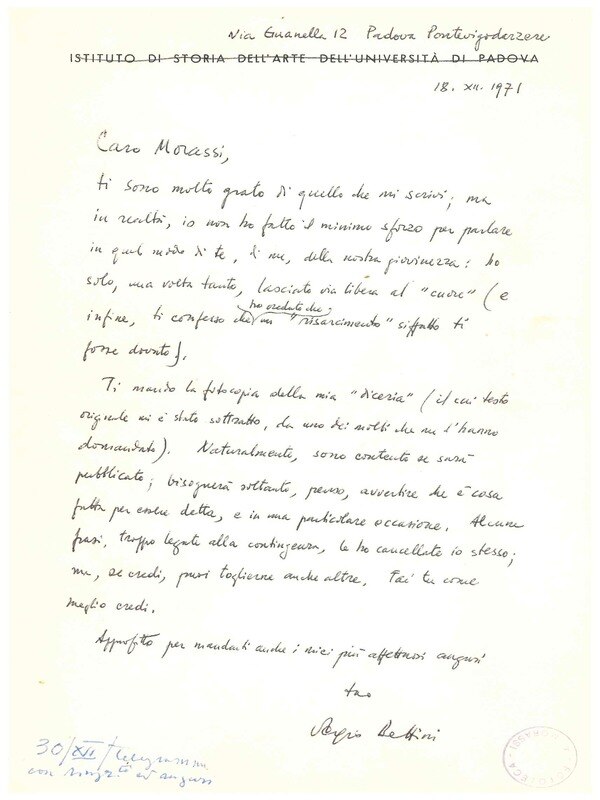 Via Guanella 12 Padova Pontevigodarzere
ISTITUTO DI STORIA DELL'ARTE DELL'UNIVERSITÀ DI PADOVA
18. XII. 1971
Caro Morassi,
ti sono molto grato di quello che mi scrivi; ma
in realtà, io non ho fatto il minimo sforzo per parlare
in quel modo di te, di me, della nostra giovinezza: ho
solo, una volta tanto, lasciato via libera al "cuore" (e
ho creduto che
infine, ti confesso che un "risarcimento" siffatto ti
fosse dovuto).
Ti mando la fotocopia della mia "diceria" (il cui testo
originale mi è stato sottratto, da uno dei molti che me l'hanno
domandato). Naturalmente, sono contento se sarà
pubblicato; bisognerà soltanto, penso, avvertire che è cosa
fatta per essere detta, e in una particolare occasione. Alcune
frasi, troppo legate alla contingenza, le ho cancellate io stesso;
ma, se credi, puoi toglierne anche altre. Fai tu come
meglio credi.
Approfitto per mandarti anche i miei più affettuosi auguri
tuo
Sergio Bettini
30/XII/ telegramma
con ed auguri
FOTOTECA A. MORASSI